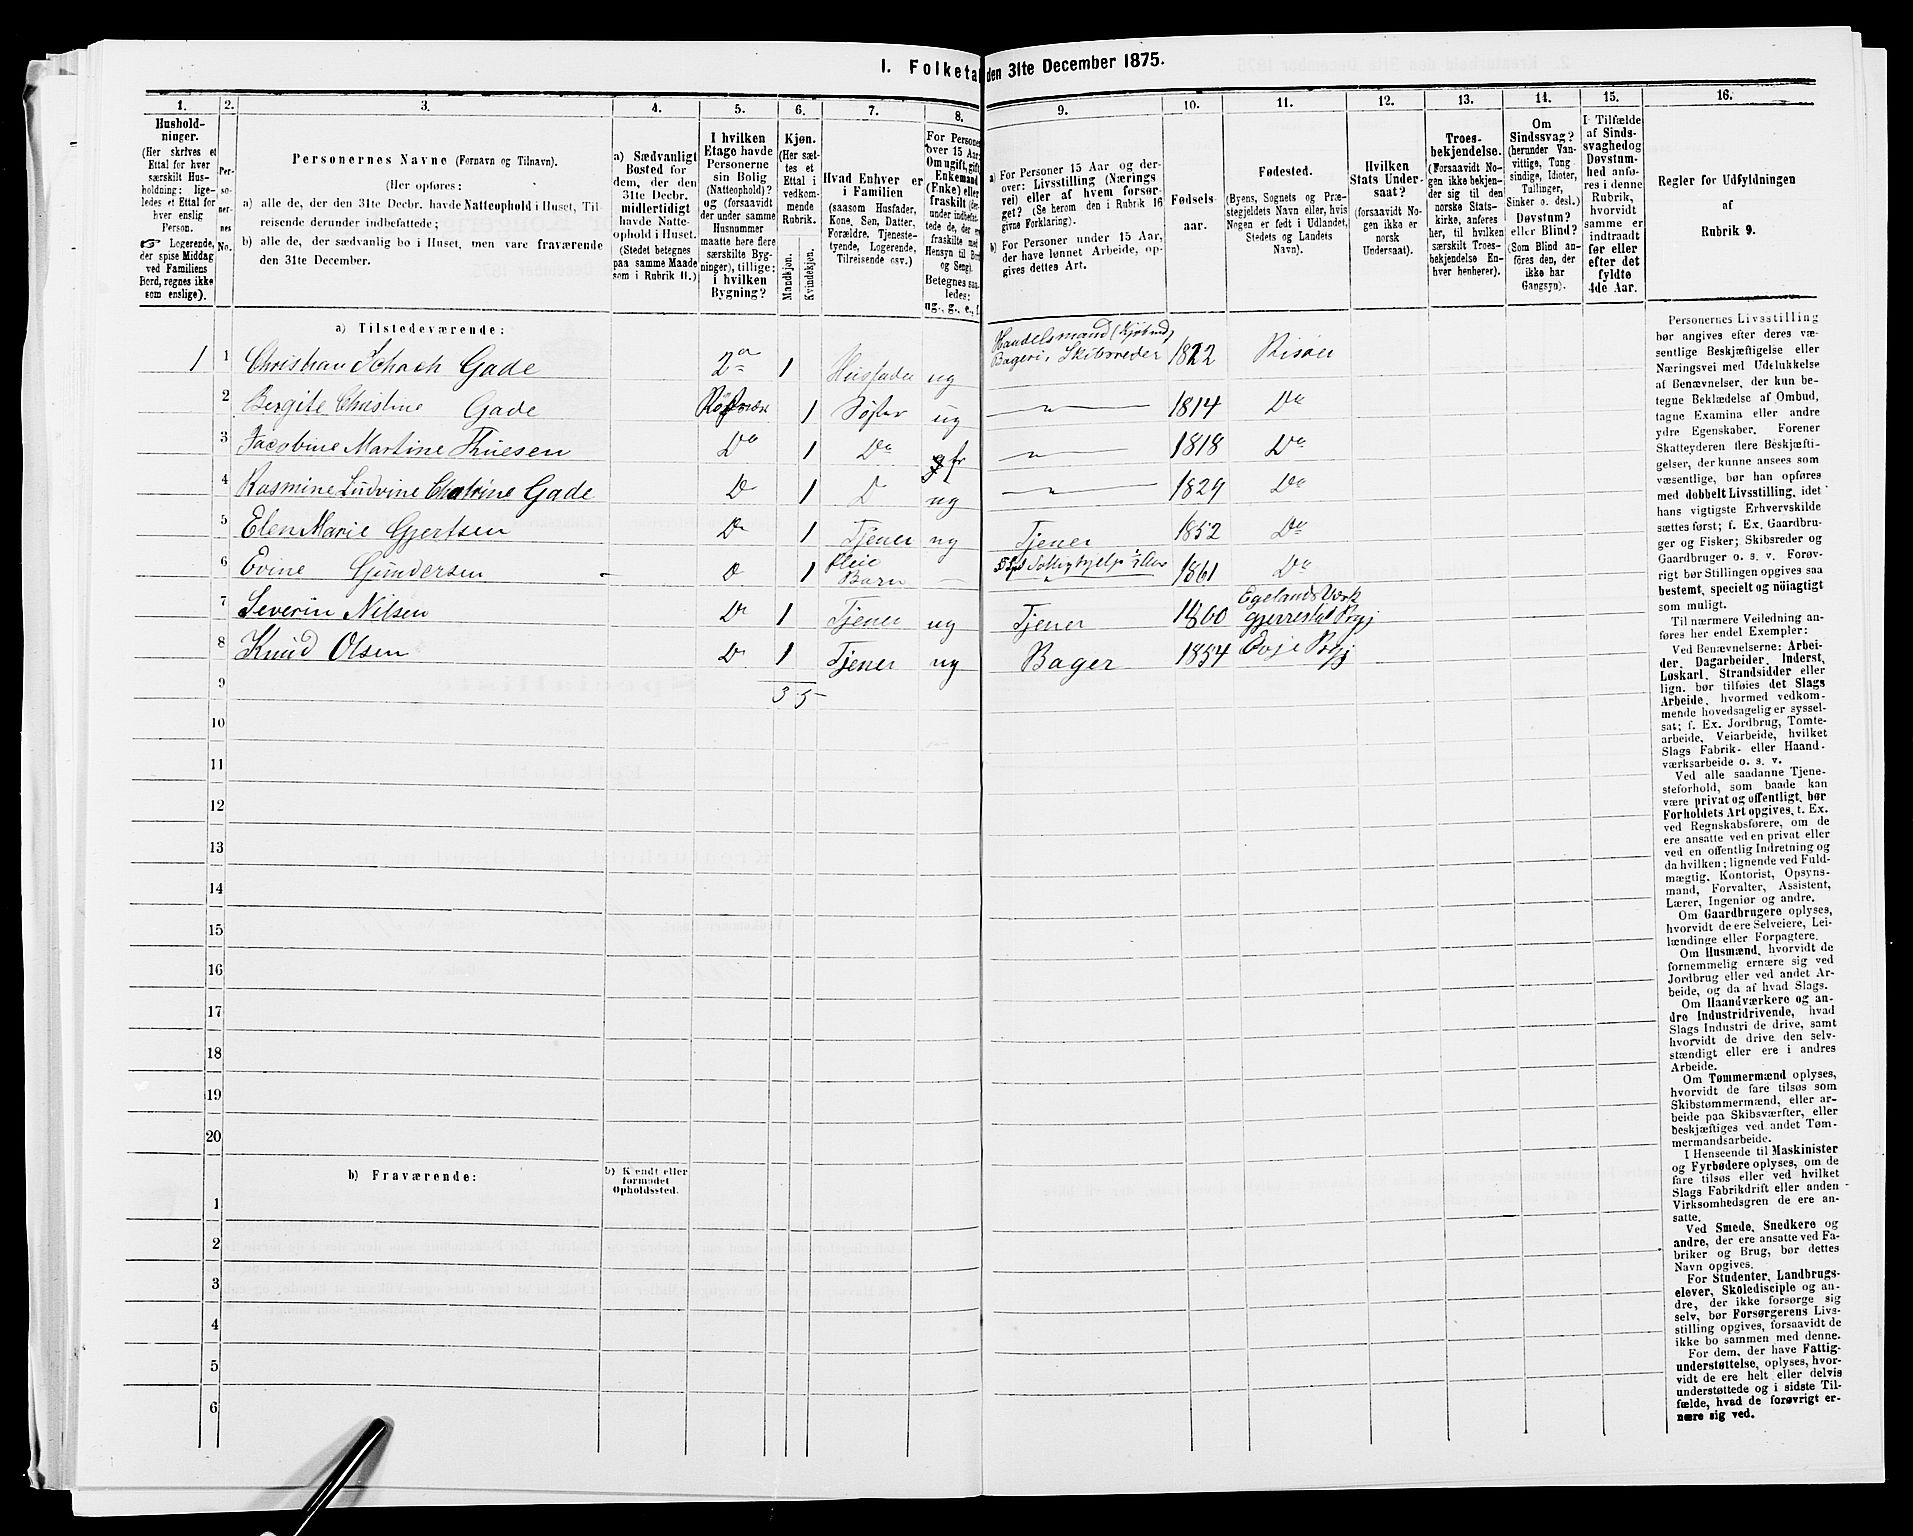 I. Folketa den 31te December 1875.
1. 2. 3. 4. 5. 6. 7. 8. 9. 10. 11. 12. 13. 14. 15. 16.
Hushold-
ninger.
(Her skrives et
Ettal for hver
særskilt Hus-
holdning; lige-
ledes et Ettal for
hver enslig
Person.
☞ Logerende,
der spise Middag
ved Familiens
Bord, regnes ikke
som enslige).
Per-
so-
ner-
nes
No.
Personernes Navne (Fornavn og Tilnavn).
(Her opføres:
a) alle de, der den 31te Decbr. havde Natteophold i Huset, Til-
reisende derunder indbefattede;
b) alle de, der sædvanlig bo i Huset, men vare fraværende
den 31te December.
a) Sædvanligt
Bosted for
dem, der den
31te Decbr.
midlertidigt
havde Natte-
ophold i Huset.
(Stedet betegnes
paa samme Maade
som i Rubrik 11.)
I hvilken
Etage havde
Personerne
sin Bolig
(Natteophold)?
og (forsaavidt
der under samme
Husnummer
maatte høre flere
særskilte Byg-
ninger), tillige:
i hvilken
Bygning?
Kjøn.
(Her sæt-
tes et
Ettal i
vedkom-
mende
Rubrik.
Mandkjøn.
Kvindekjøn.
Hvad Enhver er
i Familien
(saasom Husfader,
Kone, Søn, Datter,
Forældre, Tjeneste-
tyende, Logerende,
Tilreisende osv.)
For Persone
over 15 Aar:
Om ugift, gift
Enkemand
(Enke) eller
fraskilt (der-
under indbefat-
tede de, der er
fraskilte med
Hensyn til Bord
og Seng).
Betegnes saa-
ledes:
ug., g., e., f.
a) For Personer 15 Aar og der-
over: Livsstilling (Nærings
vei) eller af hvem forsør-
get? (Se herom den i Rubrik 16
givne Forklaring).
b) For Personer under 15 Aar,
der have lønnet Arbeide, op-
gives dettes Art.
Fødsels-
aar.
Fødested.
(Byens, Sognets og Præ-
stegjeldets Navn eller, hvis
Nogen er født i Udlandet,
Stedets og Landets
Navn).
Hvilken
Stats Under-
saat?
(forsaavidt No-
gen ikke er
norsk
Undersaat).
Troes-
bekjendelse.
(Forsaavidt No-
gen ikke bekjen-
der sig til den
norske Stats-
kirke, anføres
her, til hvilken
særskilt Troes-
bekjendelse En-
hver henhører).
Om
Sindssvag?
(herunder Van-
vittige, Tung-
sindige, Idioter,
Tullinger,
Sinker o. desl.)
Døvstum?
eller Blind?
(Som Blind an-
føres den, der
ikke har
Gangsyn).
I Tilfælde
af Sinds-
svaghed og
Døvstum-
hed anfø-
res i denne
Rubrik,
hvorvidt
samme er
indtraadt
før eller
efter det
fyldte
4de Aar.
Regler for Udfyldningen
af
Rubrik 9.
a) Tilstedeværende:
1 1 Christian Schach Gade 2 1 Husfader ug Handelsmand (Kjøbmd) Bageri, Skibsreder 1822 Risøer
2 Bergite Christine Gade 1 Søster ug 1814 Do
3 Jacobine Martine Thuesen Do 1 Do fr 1818 Do
4 Rasmine Ludvine Gade D 1 D ug 1829 Do
5 Elen Marie Gjertsen Do 1 Tjener ug Tjener 1852 Do
6 Evine Gundersen D 1 Pleie Barn 1861 Do
7 Severin Nilsen Do 1 Tjener ug Tjener 1860 Egelands Værk
8 Knud Olsen D 1 Tjener ug Bager 1854 Evje
9 3 5
10
11
12
13
14
15
16
17
18
19
20
b) Fraværende:
b) Kjendt eller
formodet
Opholdssted.
1
2
3
4
5
6
Personernes Livsstilling
bør angives efter deres væ-
sentlige Beskjæftigelse eller
Næringsvei med Udelukkelse
af Benævnelser, der kun be-
tegne Beklædelse af Ombud,
tagne Examina eller andre
ydre Egenskaber. Forener
Skatteyderen flere Beskjæfti-
gelser, der kunne ansees som
væsentlige, bør han opføres
med dobbelt Livsstilling, idet
hans vigtigste Erhvervskilde
sættes først; f. Ex. Gaardbru-
ger og Fisker; Skibsreder og
Gaardbruger o. s. v. Forøv-
rigt bør Stillingen opgives saa
bestemt, specielt og nøiagtigt
som muligt.
Til nærmere Veiledning an-
føres her endel Exempler:
Ved Benævnelserne: Arbei-
der, Dagarbeider, Inderst,
Løskarl, Strandsidder eller
lign. bør tilføies det Slags
Arbeide, hvormed vedkom-
mende hovedsagelig er syssel-
sat; f. Ex. Jordbrug, Tomte-
arbeide, Veiarbeide, hvilket
Slags Fabrik- eller Haand-
værksarbeide o. s. v.
Ved alle saadanne Tjene-
steforhold, som baade kan
være privat og offentligt, bør
Forholdets Art opgives, t. Ex.
ved Regnskabsførere, om de
ere ansatte ved en privat eller
ved en offentlig Indretning og
da hvilken; lignende ved Fuld-
mægtig, Kontorist, Opsyns-
mand, Forvalter, Assistent,
Lærer, Ingeniør og andre.
Om Gaardbrugere oplyses,
hvorvidt de ere Selveiere, Lei-
lændinge eller Forpagtere.
Om Husmænd, hvorvidt de
fornemmelig ernære sig ved
Jordbrug eller ved andet Ar-
beide, og da af hvad Slags.
Om Haandværkere og an-
dre Industridrivende, hvad
Slags Industri de drive, samt
hvorvidt de drive den selv-
stændigt eller ere i andres
Arbeide.
Om Tømmermænd oplyses,
hvorvidt de fare tilsøs som
Skibstømmermænd, eller ar-
beide paa Skibsværfter, eller
beskjæftiges ved andet Tøm-
mermandsarbeide.
I Henseende til Maskinister
og Fyrbødere oplyses, om de
fare tilsøs eller ved hvilket
Slags Fabrikdrift eller anden
Virksomhedsgren de ere an-
satte.
Ved Smede, Snedkere og
andre, der ere ansatte ved Fa-
briker og Brug, bør dettes
Navn opgives.
For Studenter, Landbrugs-
elever, Skoledisciple og an-
dre, der ikke forsørge sig
selv, bør Forsørgerens Livs-
stilling opgives, forsaavidt de
ikke bo sammen med denne.
For dem, der have Fattig-
understøttelse, oplyses, hvor-
vidt de ere helt eller delvis
understøttede og i sidste Til-
fælde, hvad de forøvrigt er-
nære sig ved.